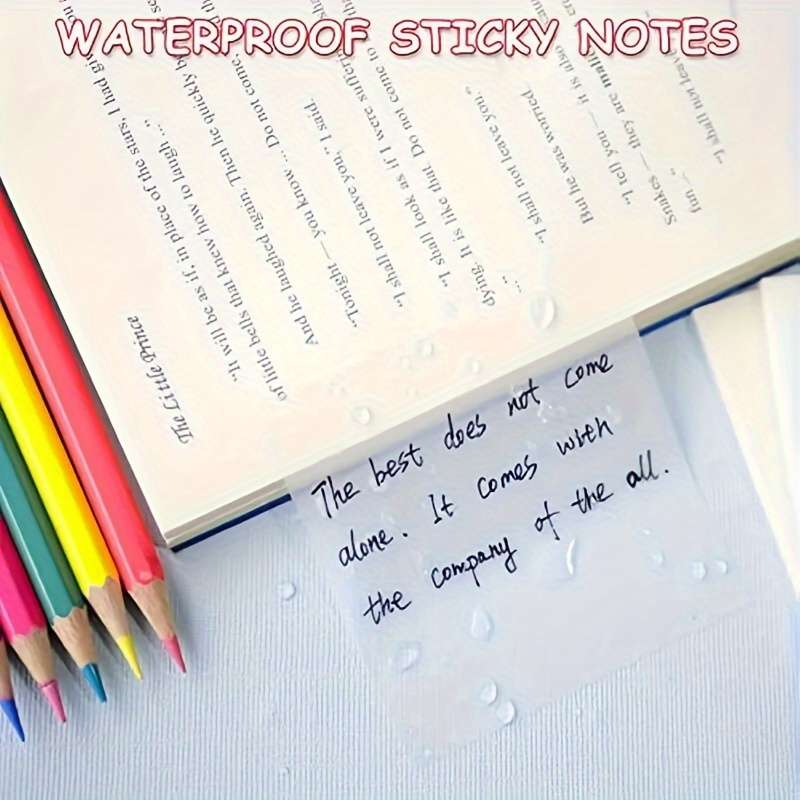 WATERPROOF STICKY NOTES
The Little Prince
"It will be as if, in place of the stars, I had giv
of little bells that knew how to laugh ..."
And he laughed again. Then he quickly b
"Tonight — you know ... Do not come,
"I shall not leave you," I said.
"I shall look as if I were suffering
dying. It is like that. Do not come to th
..."
"I shall not leave you."
But he was worried.
"I tell you — it is also
Snakes — they are mali
fun ..."
"I shall not leave
The best does not come
alone. It comes with
the company of the all.